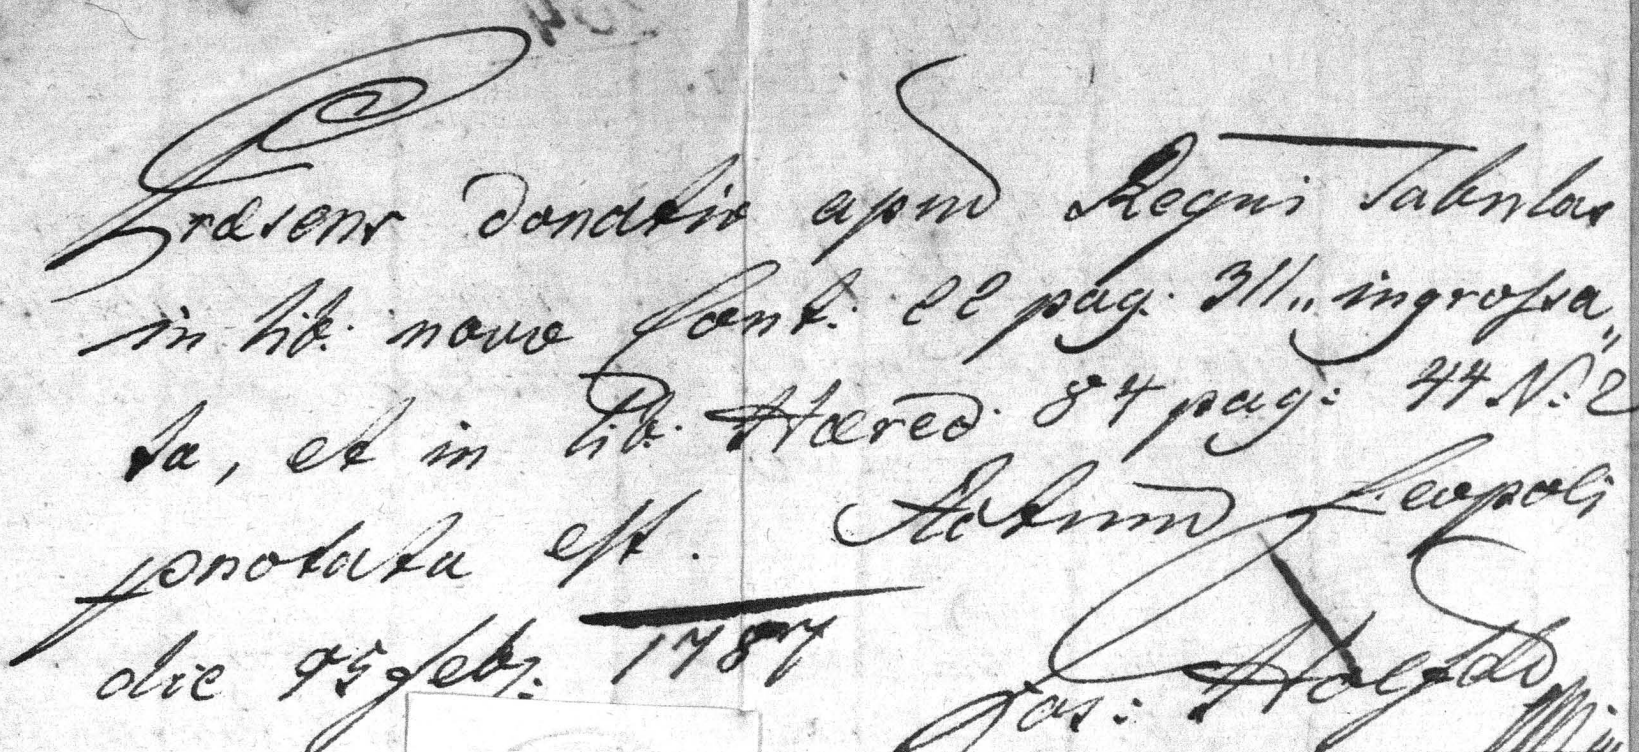 Præsens donatio apud Regni Tabulas
in lib: novo Cont: 22 pag: 311 „ ingrossa„
ta, et in Lib: Hæred: 84 pag: 44 N: 2
pnotata est. Actum Leopoli
die 7br: 1787
Jos: